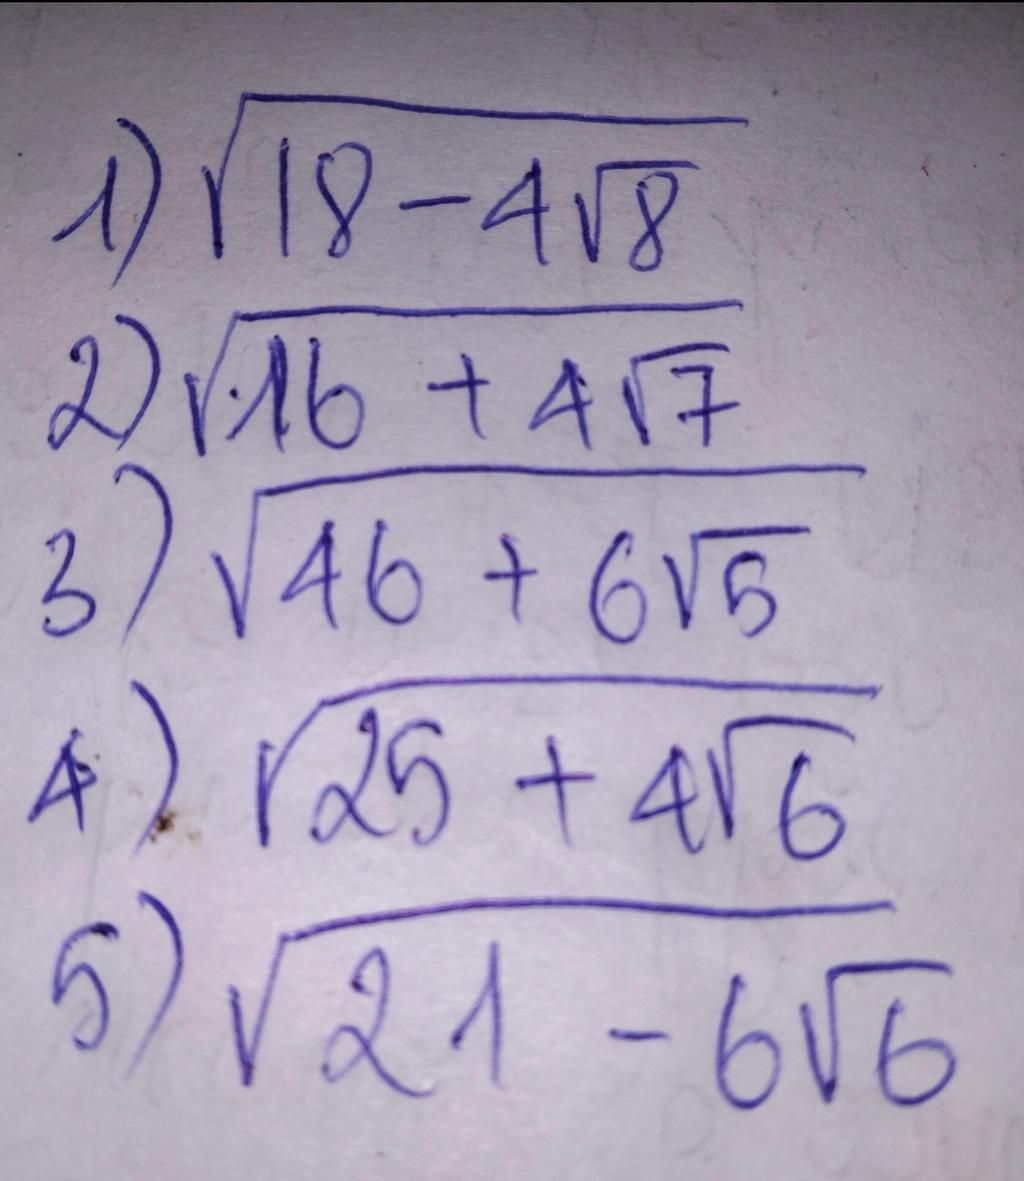 1) √18 - 4√8
2) √16 + 4√7
3) √46 + 6√5
4) √25 + 4√6
5) √21 - 6√6